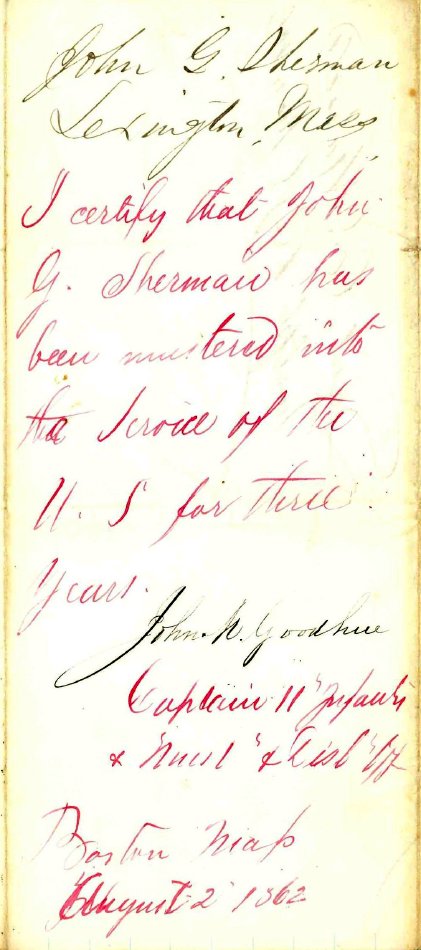 John G. Sherman
Lexington, Mass
I certify that John
G. Sherman has
been mustered into
the Service of the
U. S for three
years.
John N. Goodhue
Captain 11" Infantry
& "Must" & "Disb" Off
Boston Mass
August 2 1862